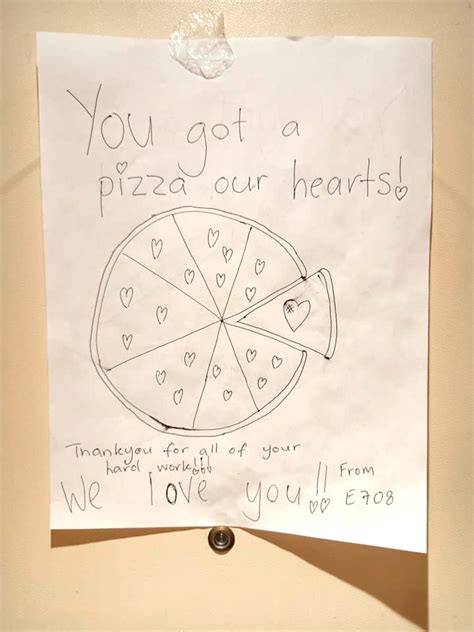 You got a
pizza our hearts!
#
Thankyou for all of your
hard work!!!
We love you!!
From
E708